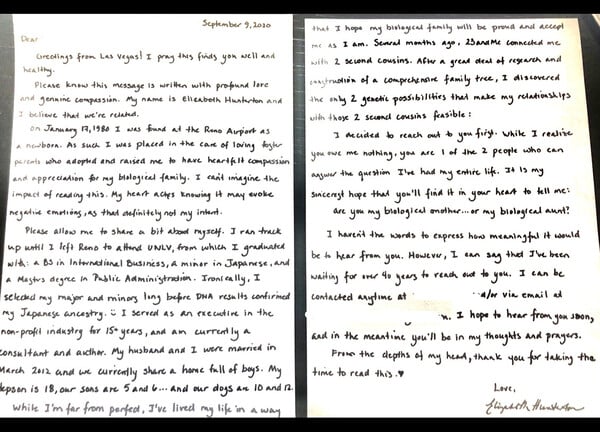 September 9, 2020
Dear
Greetings from Las Vegas! I pray this finds you well and
healthy.
Please know this message is written with profound love
and genuine compassion. My name is Elizabeth Hunterton and
I believe that we're related.
On January 17, 1980 I was found at the Reno Airport as
a newborn. As such I was placed in the care of loving foster
parents who adopted and raised me to have heartfelt compassion
and appreciation for my biological family. I can't imagine the
impact of reading this. My heart aches knowing it may evoke
negative emotions, as that definitely not my intent.
Please allow me to share a bit about myself. I ran track
up until I left Reno to attend UNLV, from which I graduated
with: a BS in International Business, a minor in Japanese, and
a Masters degree in Public Administration. Ironically, I
selected my major and minors long before DNA results confirmed
my Japanese ancestry. I served as an executive in the
non-profit industry for 15+ years, and am currently a
consultant and author. My husband and I were married in
March 2012 and we currently share a home full of boys. My
stepson is 18, our sons are 5 and 6... and our dogs are 10 and 12.
While I'm far from perfect, I've lived my life in a way
that I hope my biological family will be proud and accept
me as I am. Several months ago, 23andMe connected me
with 2 second cousins. After a great deal of research and
construction of a comprehensive family tree, I discovered
the only 2 genetic possibilities that make my relationships
with those 2 second cousins feasible:
I decided to reach out to you first. While I realize
you owe me nothing, you are 1 of the 2 people who can
answer the question I've had my entire life. It is my
sincerest hope that you'll find it in your heart to tell me:
are you my biological mother... or my biological aunt?
I haven't the words to express how meaningful it would
be to hear from you. However, I can say that I've been
waiting for over 40 years to reach out to you. I can be
contacted anytime at d/or via email at
n. I hope to hear from you soon,
and in the meantime you'll be in my thoughts and prayers.
From the depths of my head, thank you for taking the
time to read this. ♥
Love,
Elizabeth Hunterton